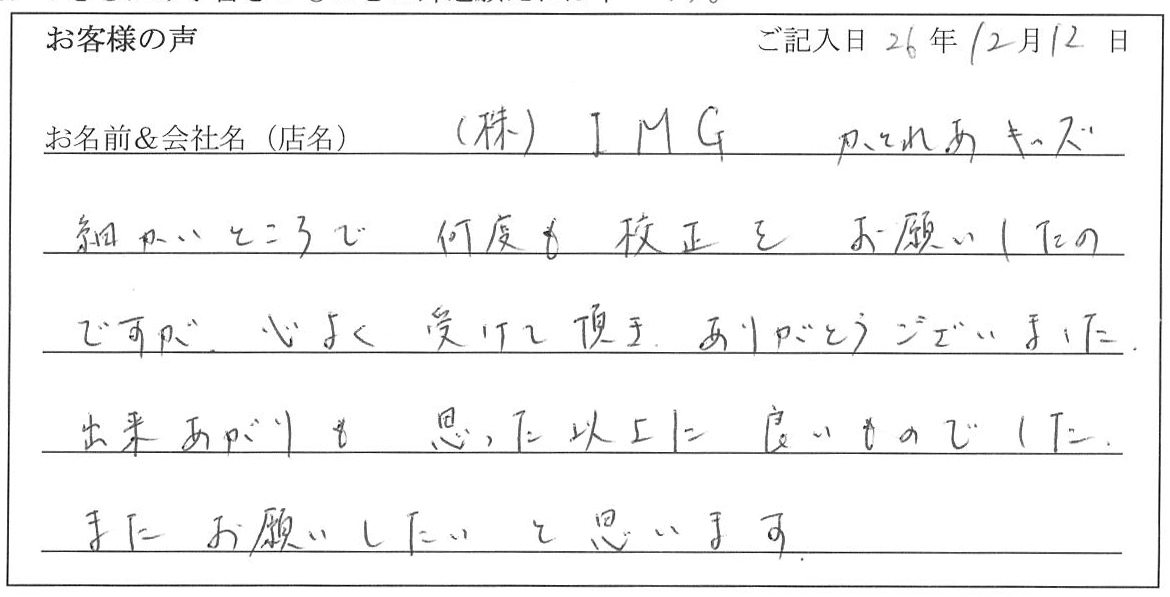 お客様の声 ご記入日 26年12月12日
お名前&会社名（店名） （株）IMG かとれあキッズ
細かいところで 何度も 校正を お願いしたの
ですが、心よく 受けて頂き、ありがとうございました.
出来あがりも 思った以上に 良いものでした.
また お願いしたい と思います.